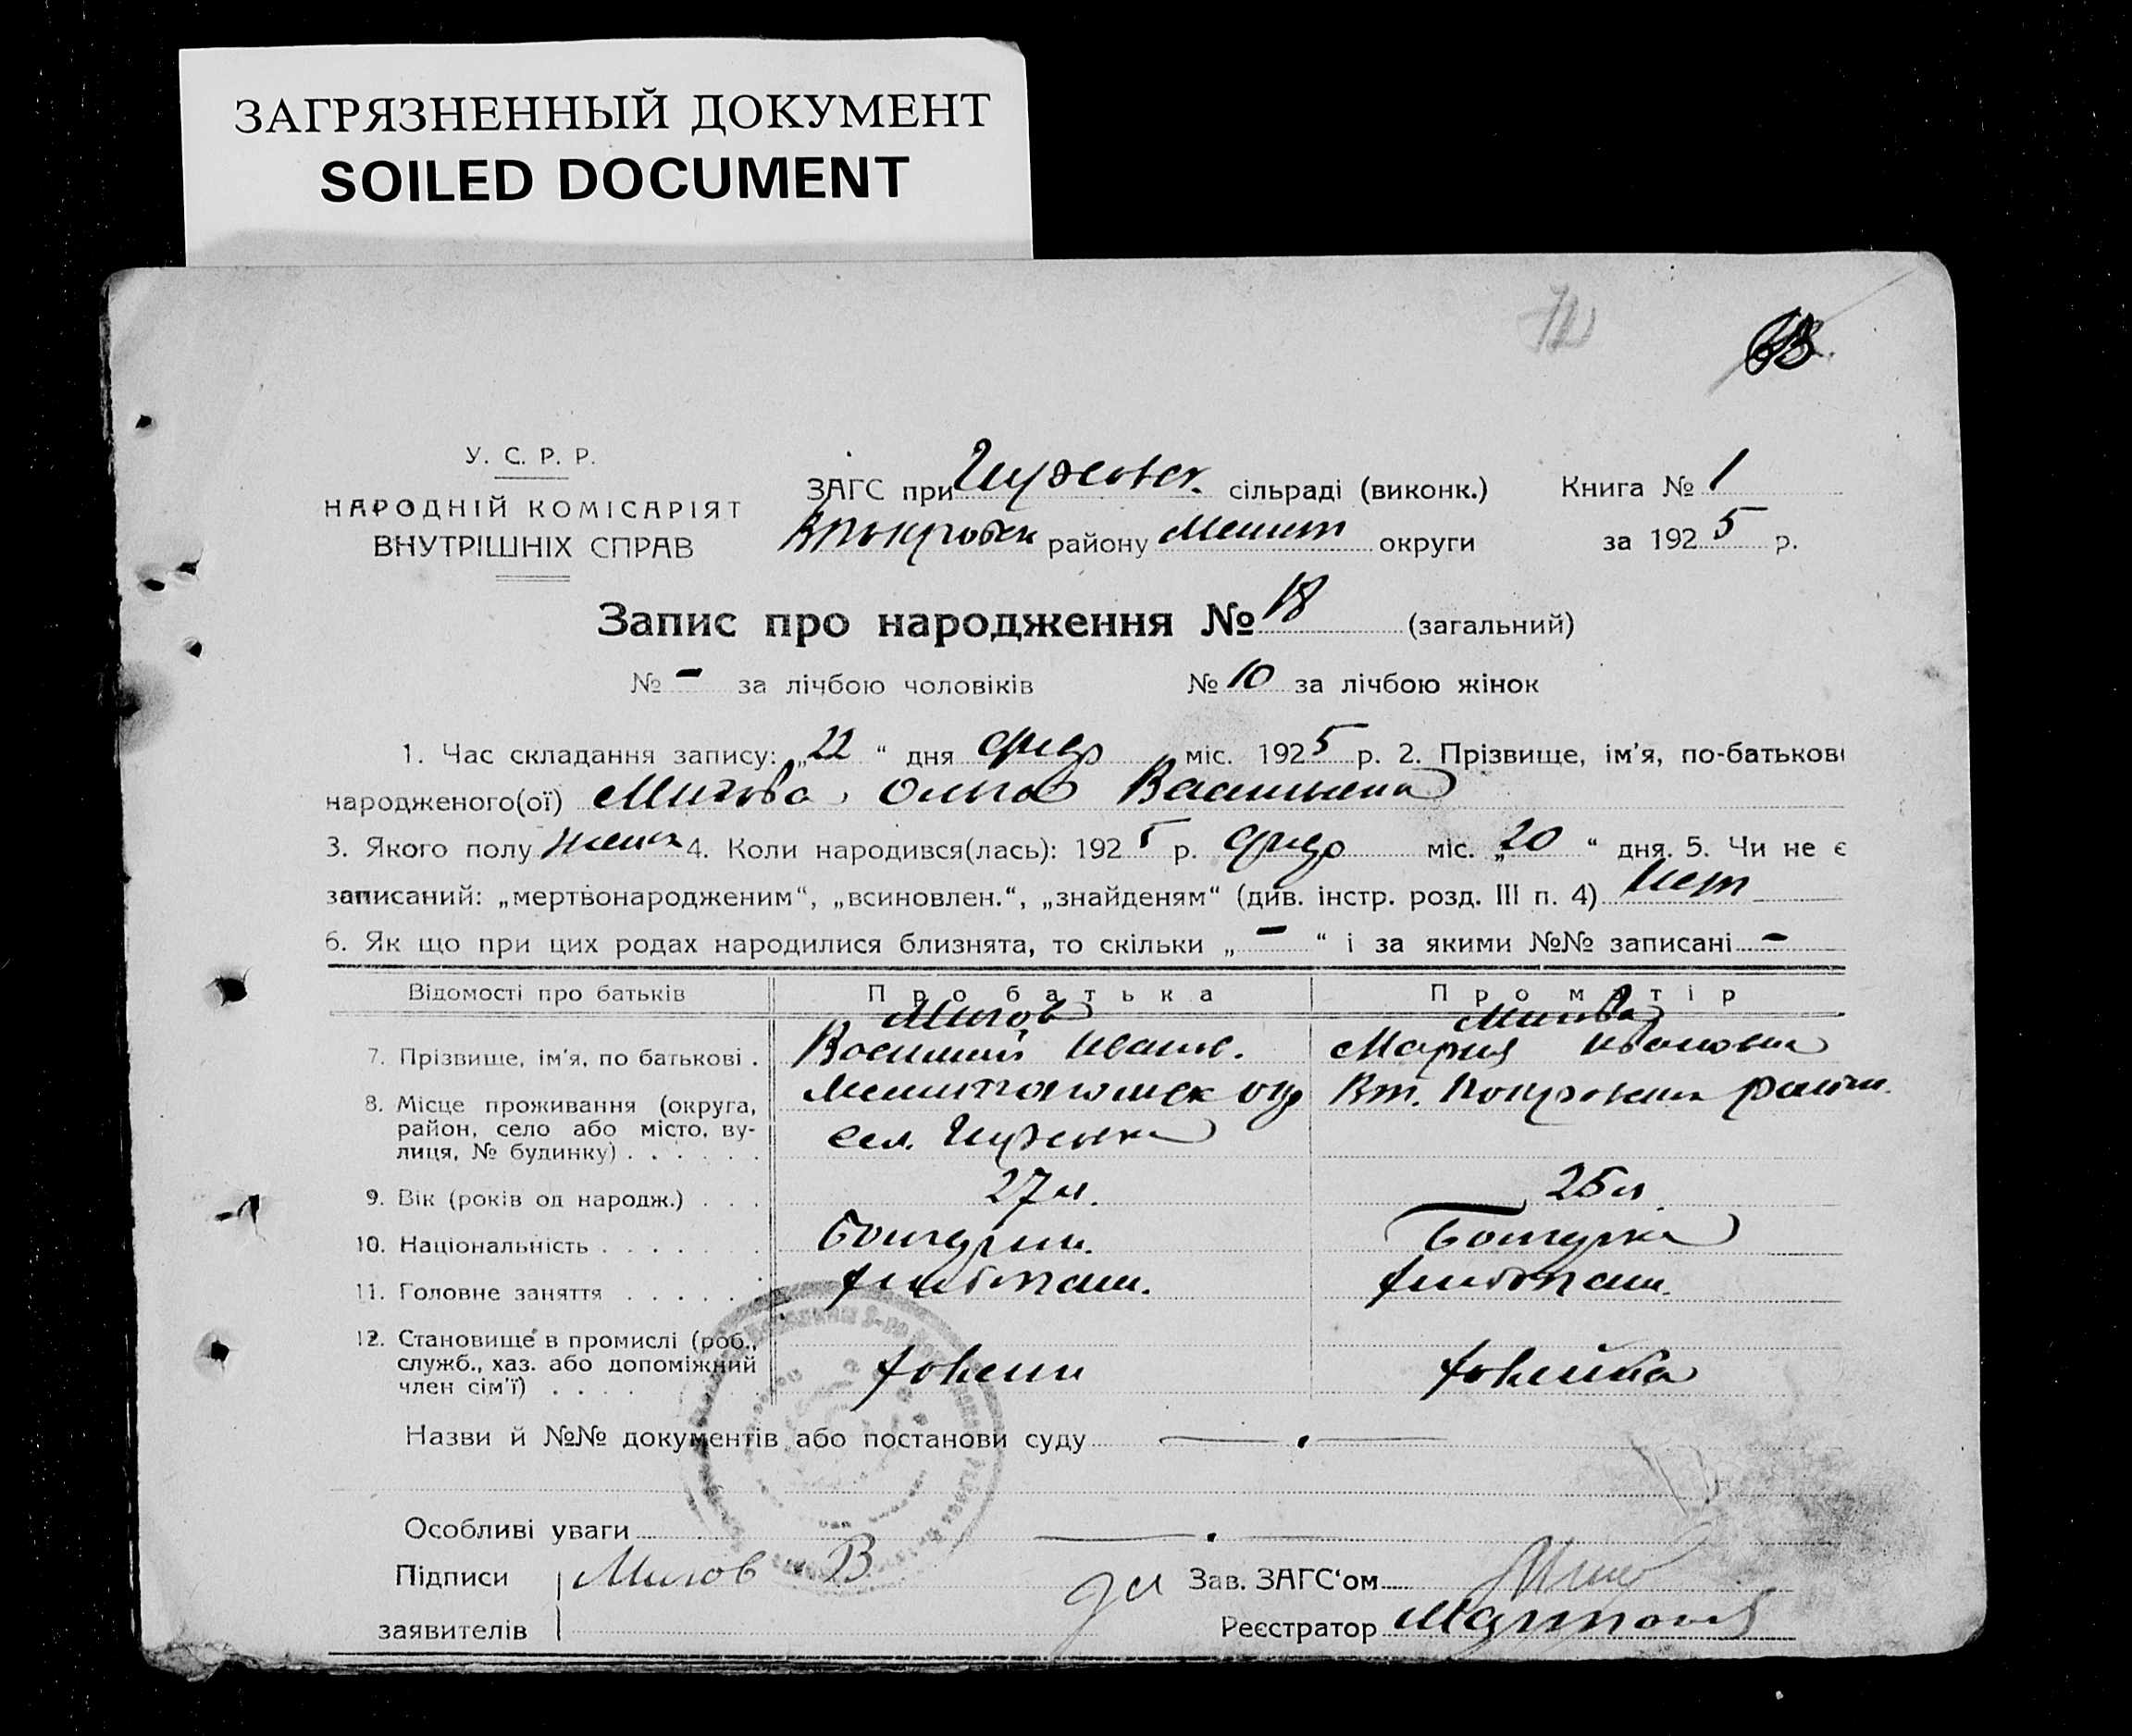 ЗАГРЯЗНЕННЫЙ ДОКУМЕНТ
SOILED DOCUMENT
У. С. Р. Р.
НАРОДНІЙ КОМІСАРІЯТ
ВНУТРІШНІХ СПРАВ
ЗАГС при сільраді (виконк.) Книга № 1
району Мелит округи за 1925 р.
Запис про народження № 18 (загальний)
№ - за лічбою чоловіків № 10 за лічбою жінок
1. Час складання запису: „22“ дня міс. 1925 р. 2. Прізвище, ім'я, по-батькові
народженого(ої) Ольга Васильевна
3. Якого полу женск 4. Коли народився(лась): 1925 р. міс. „20“ дня. 5. Чи не є
записаний: „мертвонародженим“, „всиновлен.“, „знайденям“ (див. інстр. розд. III п. 4) Нет
6. Як що при цих родах народилися близнята, то скільки „-“ і за якими №№ записані -
Відомості про батьків Про батька Про матір
7. Прізвище, ім'я, по батькові . Василий Иванов. Мария Ивановна
8. Місце проживання (округа, Мелитопольск окр Вт. Покровский район.
район, село або місто, ву- сел.
лиця, № будинку) . . . . . .
9. Вік (років од народж.) . . . 27 л. 25 л
10. Національність . . . . . . Болгарин. Болгарка
11. Головне заняття . . . . . . хлебопаш. хлебопаш.
12. Становище в промислі (роб.,
служб., хаз. або допоміжний хозяин хозяйка
член сім'ї) . . . .
Назви й №№ документів або постанови суду
Особливі уваги
Підписи В Зав. ЗАГС'ом
заявителів Реєстратор